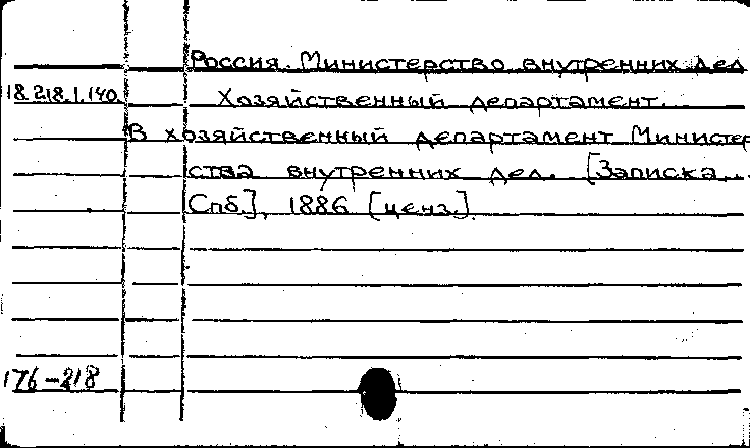 Россия. Министерство внутренних дел
18.218.1.140. Хозяйственный департамент.
В хозяйственный департамент Министер
ства внутренних дел. [Записка...
Спб.], 1886 [ценз.]
176-218